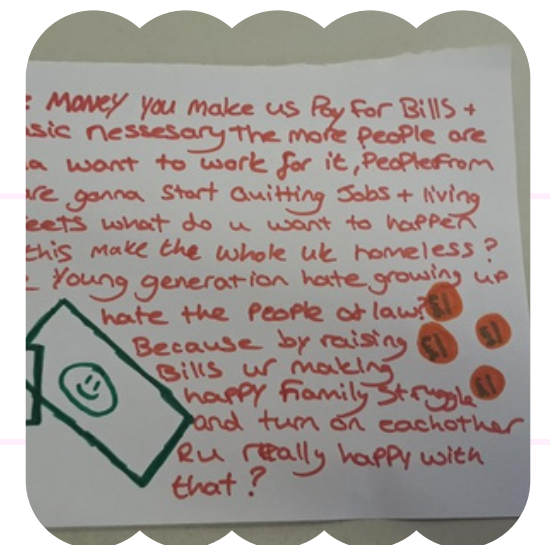 e MONEY you make us Pay for Bills +
sic nessesary The more people are
a want to work for it, People From
re gonna Start Quitting Jobs + living
eets what do u want to happen
this make the whole uk homeless?
Young generation hate growing up
hate the people of law?
Because by raising
Bills ur making
happy Family Struggle
and turn on eachother
Ru really happy with
that?